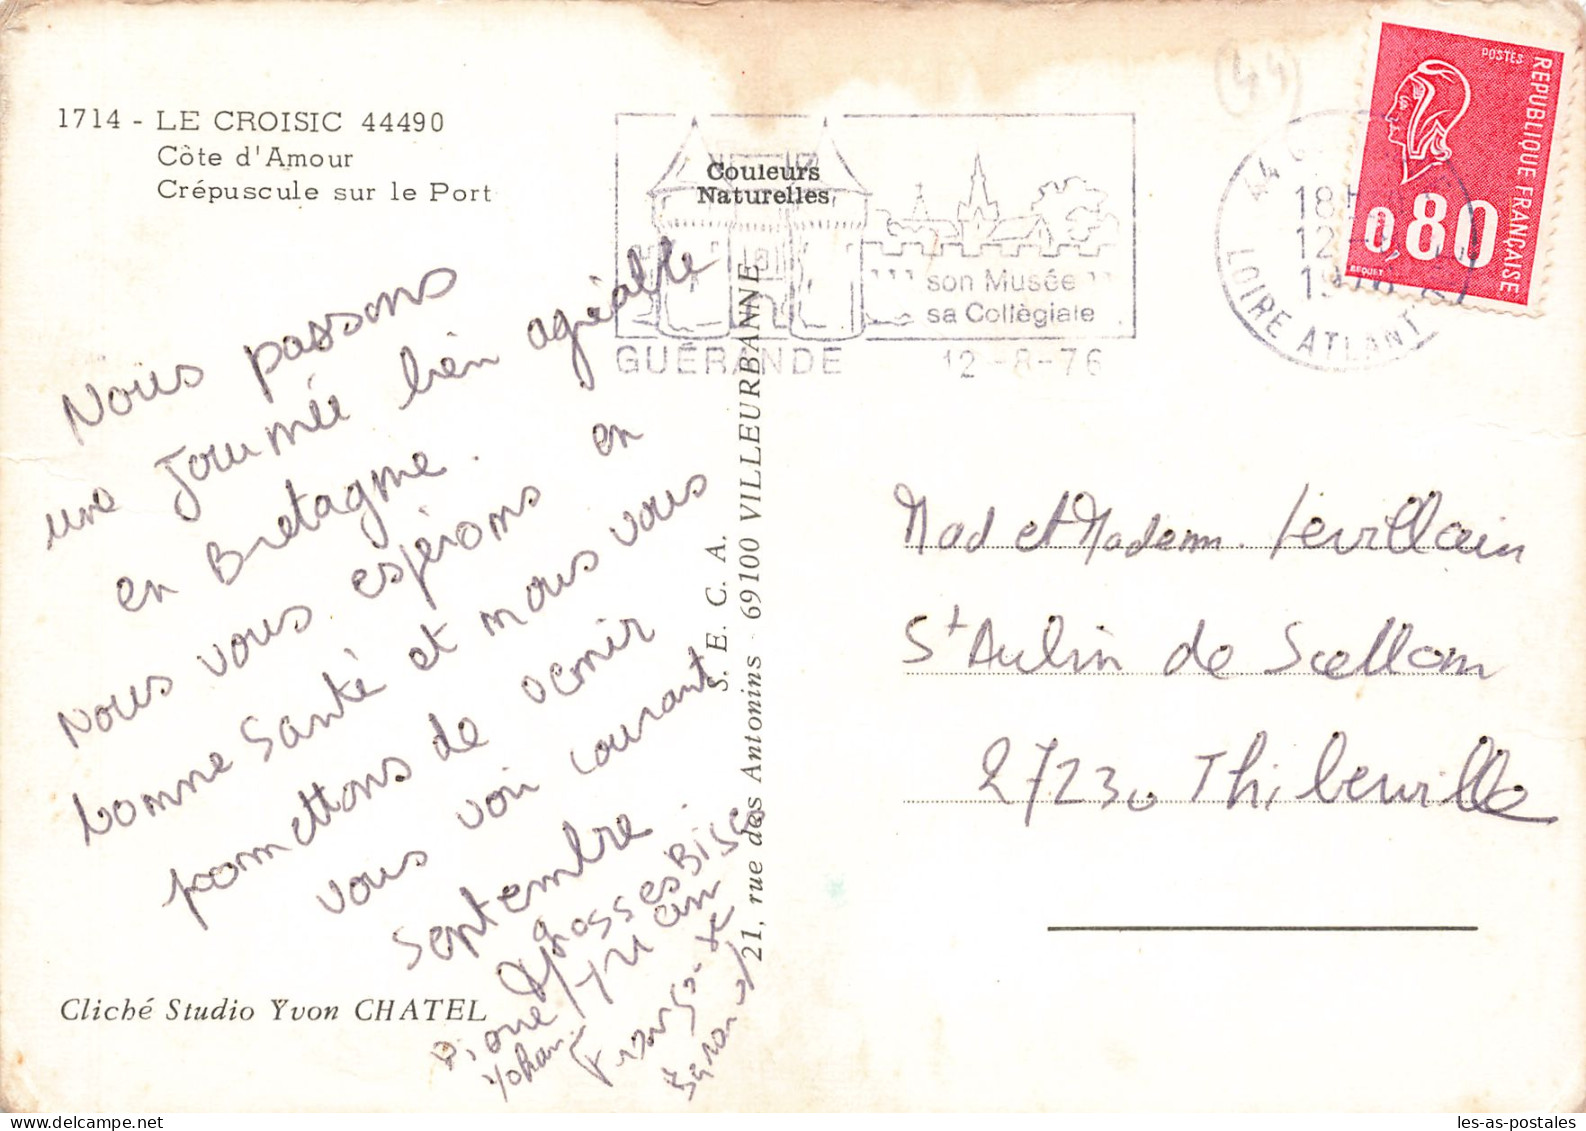 1714 - LE CROISIC 44490
Côte d'Amour
Crépuscule sur le Port
Nous passons
une journée bien agréable
en Bretagne.
Nous vous espérons en
bonne Santé et nous vous
promettons de venir
vous voir courant
Septembre.
grosses Bises
Yohan
Cliché Studio Yvon CHATEL
S. E. C. A.
21, rue des Antonins - 69100 VILLEURBANNE
Couleurs
Naturelles
son Musée
sa Collègiale
GUÉRANDE 12-8-76
(44)
18H
12-8
1976
LOIRE ATLANT
POSTES
REPUBLIQUE FRANÇAISE
0,80
BEQUET
Mad et Madem. Levillain
St Aubin de Scellon
27230 Thiberville
les-as-postales.com